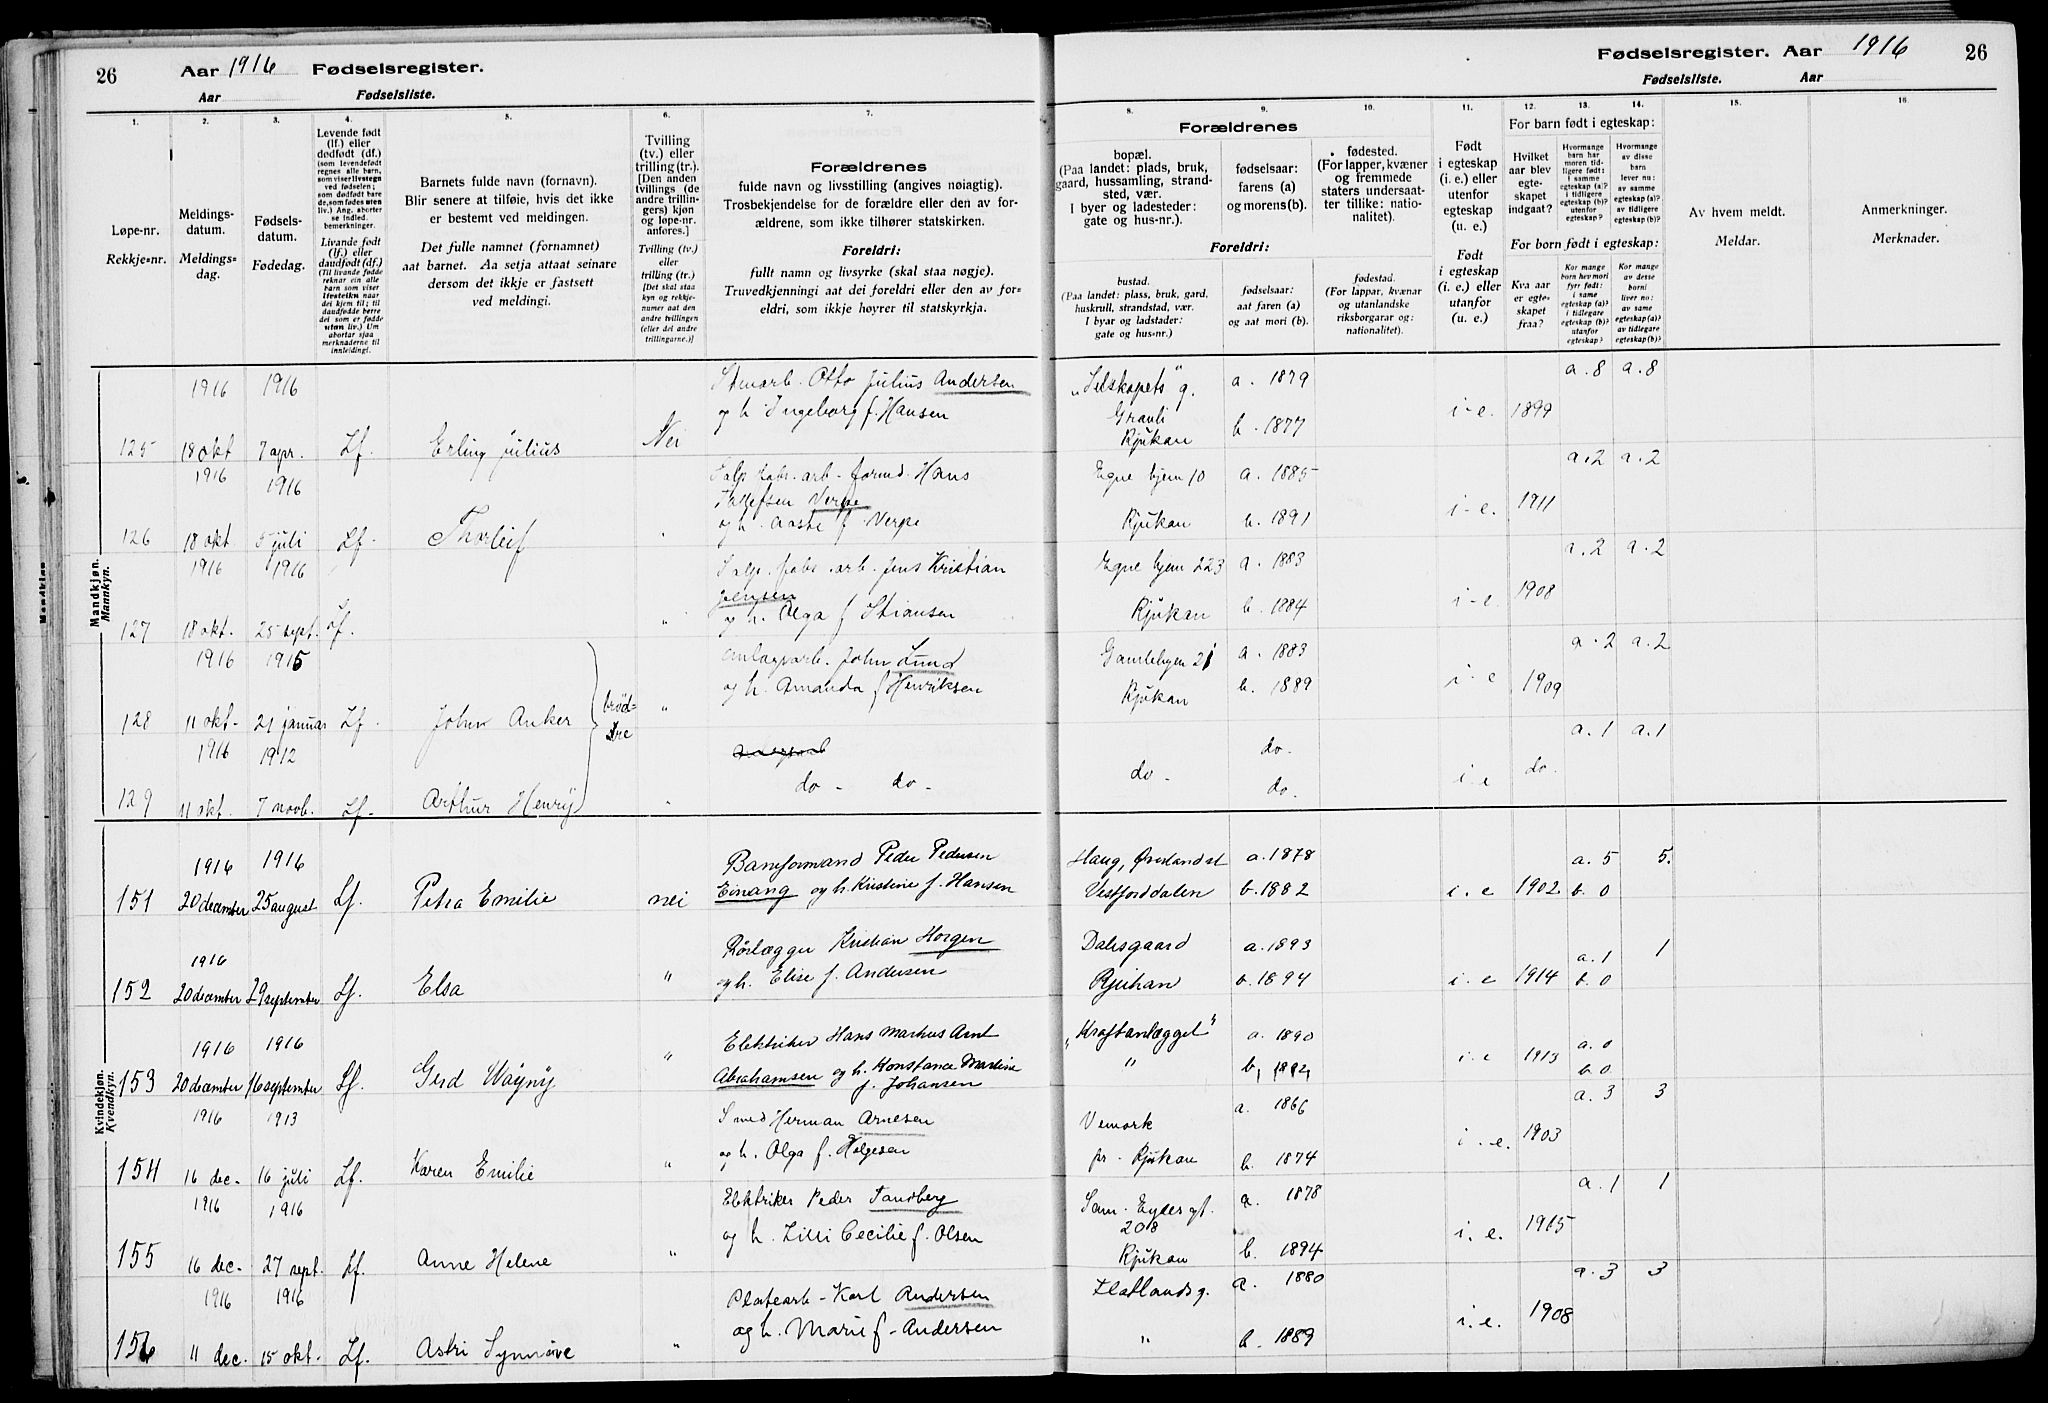 26 Aar 1916 Fødselsregister.
Aar Fødselsliste.
Fødselsregister. Aar 1916 26
Fødselsliste. Aar
1. 2. 3. 4. 5. 6. 7. 8. 9. 10. 11. 12. 13. 14. 15. 16
Løpe-nr.
Rekkje-nr.
Meldings-
datum.
Meldings-
dag.
Fødsels-
datum.
Fødedag.
Levende født
(lf.) eller
dødfødt (df.)
(som levendefødt
regnes alle barn,
som viser livstegn
ved fødselen;
som dødfødt bare
de, som fødes uten
liv.) Ang. aborter
se Indled.
bemerkninger.
Livande født
(lf.) eller
daudfødt (df.)
(Til livande fødde
reknar ein alle
barn som viser
livsteikn naar
dei kjem til; til
daudfødde berre
dei som er fødde
utan liv.) Um
abortar sjaa
merknaderne til
innleidingi.
Barnets fulde navn (fornavn).
Blir senere at tilføie, hvis det ikke
er bestemt ved meldingen.
Det fulle namnet (fornamnet)
aat barnet. Aa setja attaat seinare
dersom det ikkje er fastsett
ved meldingi.
Tvilling
(tv.) eller
trilling (tr.).
[Den anden
tvillings (de
andre trillin-
gers) kjøn
og løpe-nr.
anføres.]
Tvilling (tv.)
eller
trilling (tr.)
[Det skal staa
kyn og rekkje-
numer aat den
andre tvillingen
(eller dei andre
trillingarne.)]
Forældrenes
fulde navn og livsstilling (angives nøiagtig).
Trosbekjendelse for de forældre eller den av for-
ældrene, som ikke tilhører statskirken.
Foreldri:
fullt namn og livsyrke (skal staa nøgje).
Truvedkjenningi aat dei foreldri eller den av for-
eldri, som ikkje høyrer til statskyrkja.
Forældrenes
bopæl.
(Paa landet: plads, bruk,
gaard, hussamling, strand-
sted, vær.
I byer og ladesteder:
gate og hus-nr.)
fødselsaar:
farens (a)
og morens (b).
fødested.
(For lapper, kvæner
og fremmede
staters undersaat-
ter tillike: natio-
nalitet).
Foreldri:
bustad.
(Paa landet: plass, bruk, gard,
huskrull, strandstad, vær.
I byar og ladstader:
gate og hus-nr.)
fødselsaar:
aat faren (a)
og aat mori (b).
fødestad.
(For lappar, kvænar
og utanlandske
riksborgarar og:
nationalitet).
Født
i egteskap
(i. e.) eller
utenfor
egteskap
(u. e.)
Født
i egteskap
(i. e.) eller
utanfor
(u. e.)
For barn født i egteskap:
Hvilket
aar blev
egte-
skapet
indgaat?
Hvormange
barn har
moren tid-
ligere født:
i samme
egteskap (a)?
i tidligere
egteskap (b)?
utenfor
egteskap?
Hvormange
av disse
barn
lever nu:
av samme
egteskap (a)?
av tidligere
egteskap (b)?
For born født i egteskap:
Kva aar
er egte-
skapet
fraa?
Kor mange
born hev mori
fyrr født:
i same
egteskap (a)?
i tidlegare
egteskap (b)?
utanfor
egteskap?
Kor mange
av desse
borni
liver no:
av same
egteskap (a)?
av tidlegare
egteskap (b)?
Av hvem meldt.
Meldar.
Anmerkninger.
Merknader.
Mandkjøn.
Mannkyn.
1916 1916 Otto Julius Andersen „Selskapets" g. a. 1879 a. 8 a. 8
og h. Ingeborg f. Hansen Gravli i-e. 1899
125 18 okt 7 apr. Lf. Erling Julius Nei Rjukan b. 1877
1916 1916 Salp. fabr. arb. formd. Hans Egne hjem 10 a. 1885 a. 2 a. 2
Verpe i-e. 1911
126 18 okt 5 juli Lf. Thorleif " og h. Aaste f. Verpe Rjukan b. 1891
1916 1916 Salp. fabr. arb. Jens Kristian Egne hjem 223 a. 1883 a. 2 a. 2
Jensen i-e. 1908
127 18 okt. 25 sept. Lf. " og h. Olga f. Stiansen Rjukan b. 1884
1916 1915 Anlægsarb. John Lund Gamlebyen 21 a. 1883 a. 2 a. 2
og h. Amanda f. Henriksen Rjukan b. 1889 i-e 1909
128 11 okt. 21 januar Lf. John Anker brød- "
dre
1916 1912 do. a. 1 a. 1
129 11 okt. 7 novb. Lf. Arthur Henry " do - do - do - do. i-e do.
Kvindekjøn.
Kvendkyn.
1916 1916 Baneformand Peder Pedersen Haug, a. 1878 a. 5 5.
151 20 december 25 august Lf. Petra Emilie nei Einang og h. Kristine f. Hansen Vestfjorddalen b. 1882 i. e 1902 b. 0
1916 Rörlægger Kristian Horgen Dalsgaard a. 1893 a. 1 1
152 20 december 29 september Lf. Elsa " og h. Elise f. Andersen Rjukan b. 1894 i. e 1914 b. 0
1916 1916 Elektriker Hans Markus Arnt „Kraftanlægget" a. 1890 a. 0
153 20 december 16 september Lf. Gerd Wäyny " Abrahamsen og h. Konstance Martine " b. 1892 i. e 1913 b. 0
f. Johansen
1916 1913 Smed Herman Arnesen Vemork a. 1866 a. 3 3
154 16 dec. 16 juli Lf. Karen Emilie " og h. Olga f. Helgesen pr. Rjukan b. 1874 i. e. 1903
1916 1916 Elektriker Peder Sandberg Sam. Eydes gt. a. 1878 a. 1 1
208
155 16 dec. 27 sept. Lf. Anne Helene " og h. Lilli Cecilie f. Olsen Rjukan b. 1894 i. e. 1915
1916 1916 Platearb. Karl Andersen Flatlandsg. a. 1880 a. 3 3
156 11 dec. 15 okt. Lf. Astri Synnöve " og h. Marie f. Andersen " b. 1889 i. e. 1908